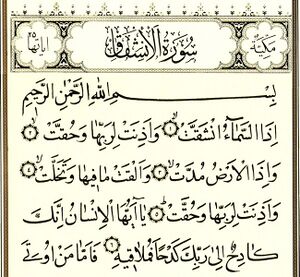 مكية سورة الانشقاق اياتها ٢٥
بِسْمِ اللهِ الرَّحْمٰنِ الرَّحِيمِ
اِذَا السَّمَاءُ انْشَقَّتْ ١ وَاَذِنَتْ لِرَبِّهَا وَحُقَّتْ ٢
وَاِذَا الْاَرْضُ مُدَّتْ ٣ وَاَلْقَتْ مَا فِيهَا وَتَخَلَّتْ ٤
وَاَذِنَتْ لِرَبِّهَا وَحُقَّتْ ٥ يَا اَيُّهَا الْاِنْسَانُ اِنَّكَ
كَادِحٌ اِلٰى رَبِّكَ كَدْحًا فَمُلَاقِيهِ ٦ فَاَمَّا مَنْ اُو۫تِيَ